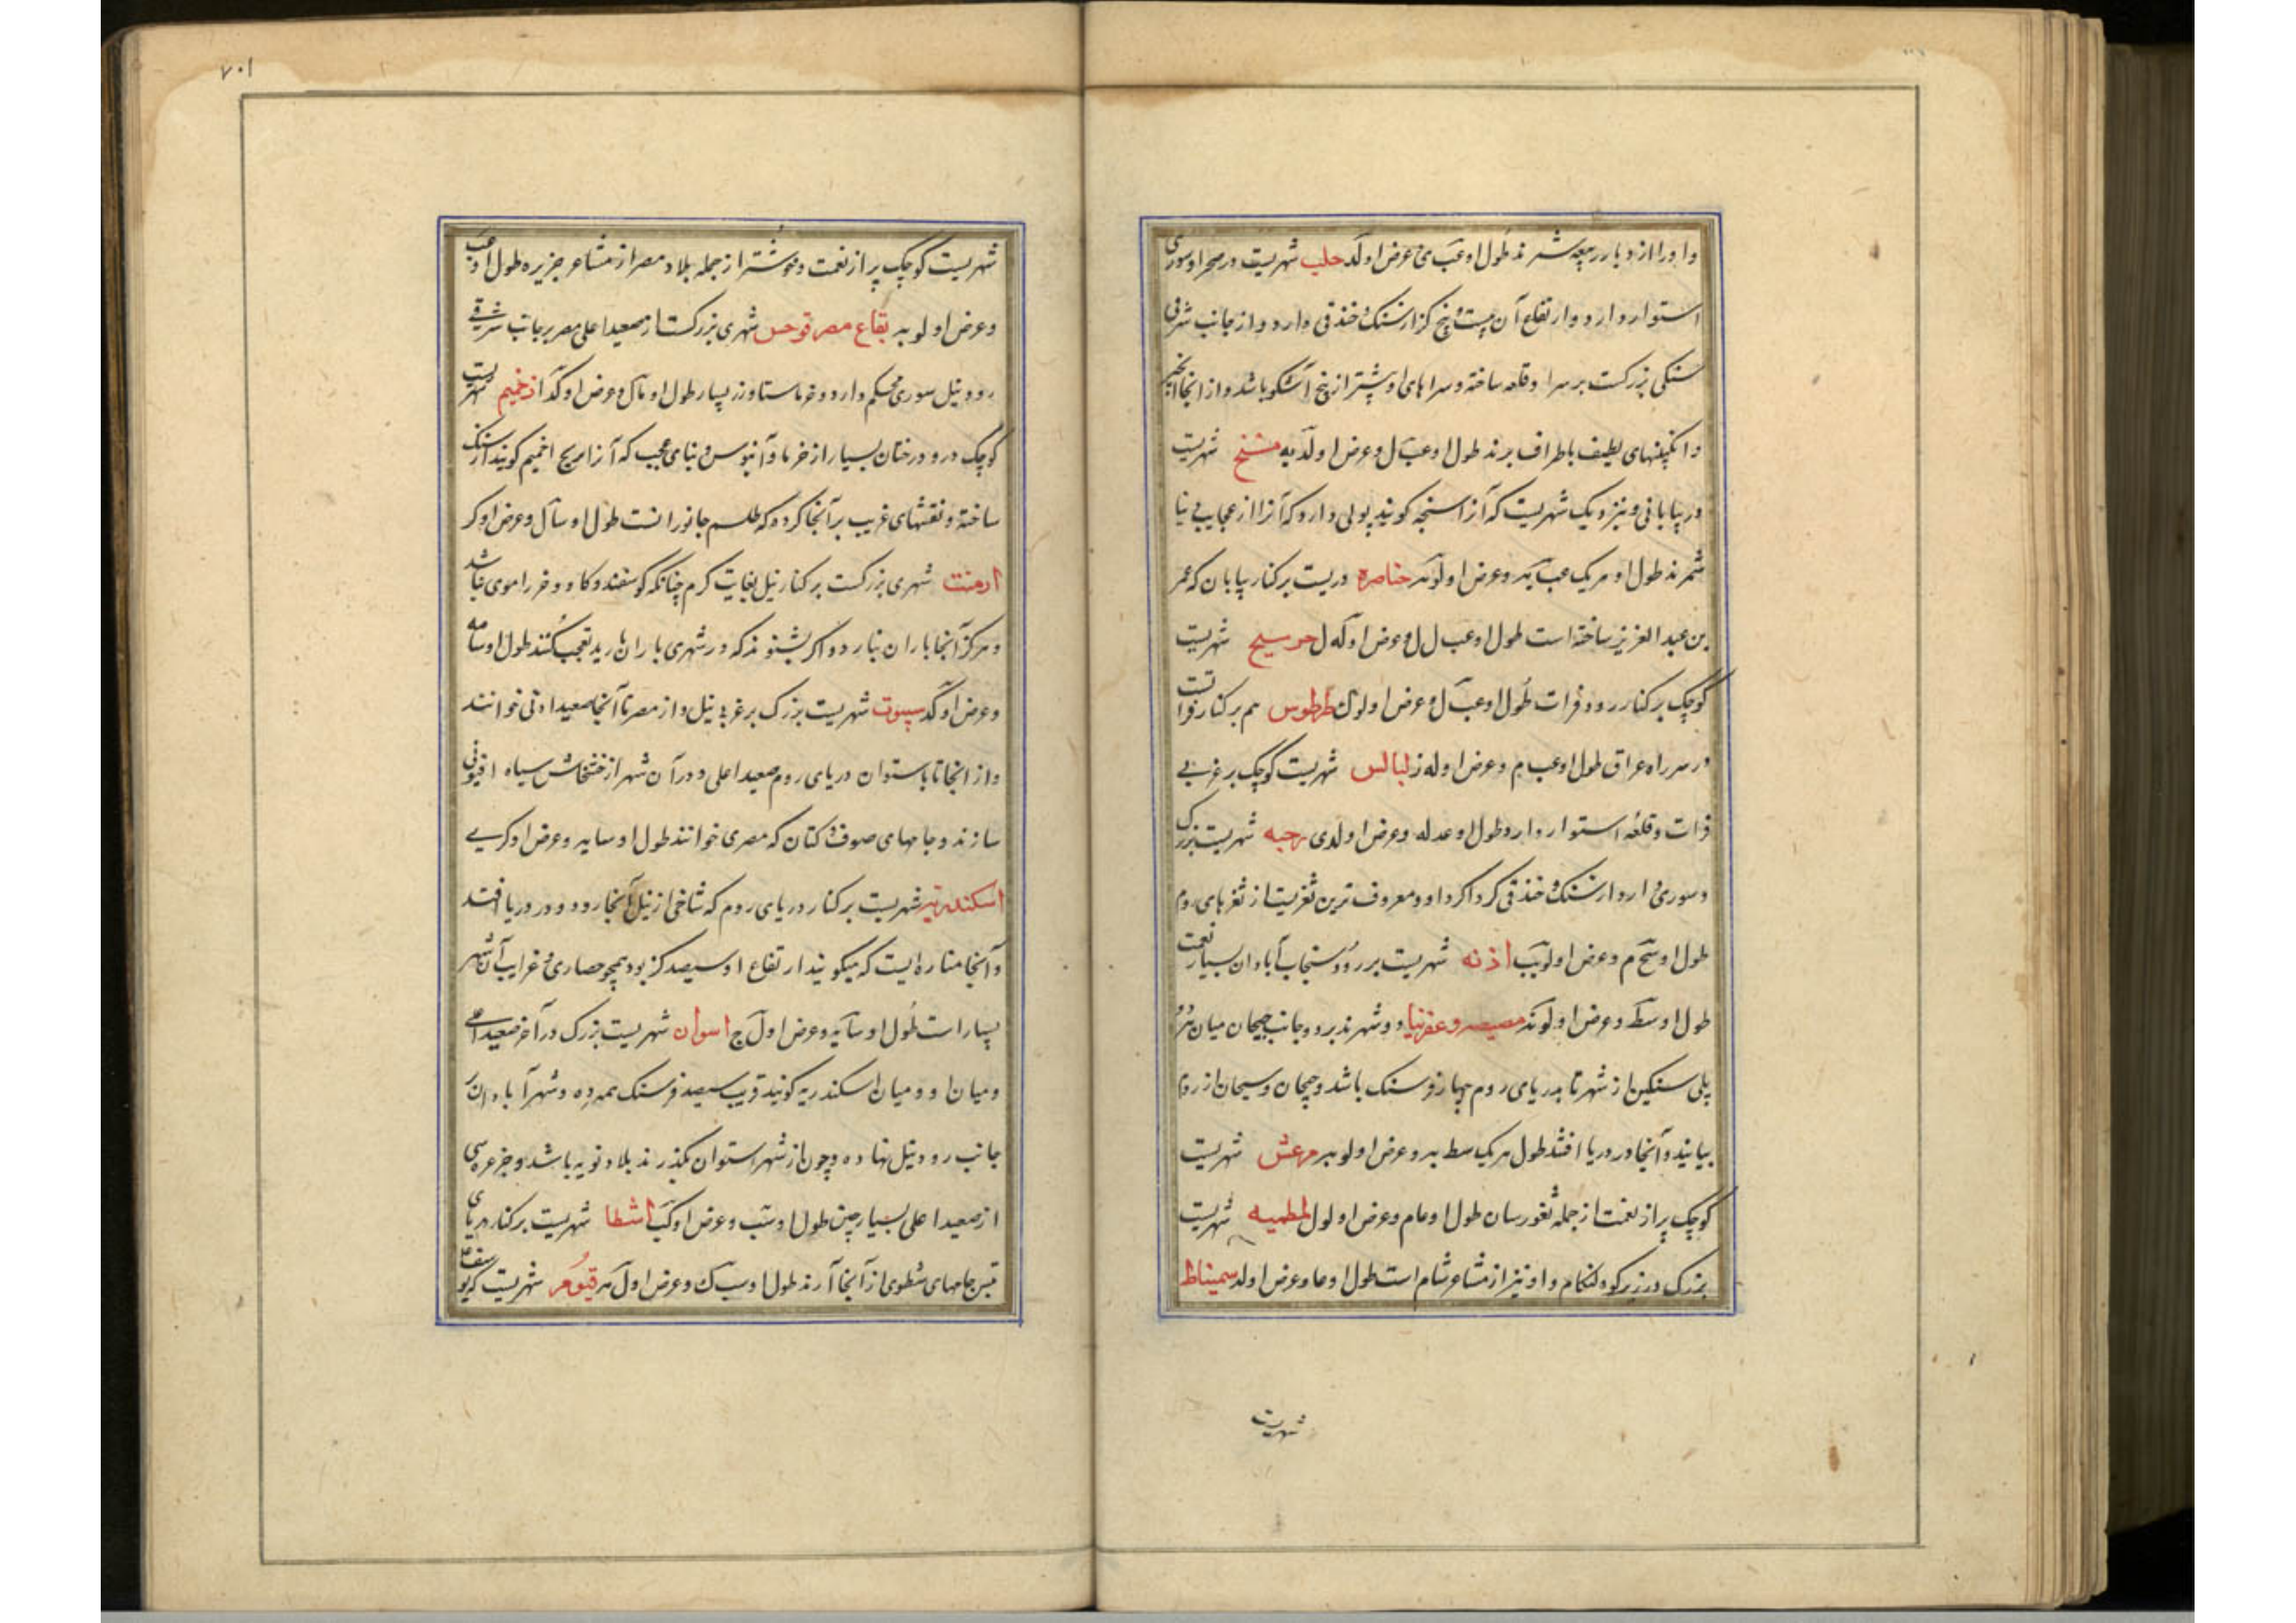 و او را از دیار ربیعه شمرند طول او عب ی عرض او لد حلب شهریست در صحرا و سوری
استوار دارد و ارتفاع آن بیست و پنج کز از سنک و خندقی دارد و از جانب شرقی
سنکی بزرکست بر سر او قلعه ساخته و سراهای او بیشتر از پنج آشکو باشد و از انجا انجیر
و انکبینهای لطیف باطراف برند طول او عب ل و عرض او لد یه منبج شهریست
در بیابانی و نزدیک شهریست که آنرا سنجه کویند پولی دارد که آنرا از عجایب دنیا
شمرند طول او هر یک عب یه و عرض او لو یه خناصره دریست بر کنار بیابان که عمر
بن عبد العزیز ساخته است طول او عب ل ل و عرض او له ل جرسیح شهریست
کوچک بر کنار رود فرات طول او عب ل و عرض او لو ک طرطوس هم بر کنار فراتست
در سر راه عراق طول او عب م و عرض او له ز لبالس شهریست کوچک بر غربی
فرات و قلعه استوار دارد طول او عد له و عرض او لدی رحبه شهریست بزرک
و سوری دارد از سنک و خندقی کرداکرد او و معروف ترین ثغریست از ثغرهای روم
طول او سح م و عرض او لو یب اذنه شهریست بر رود سنجاب آبادان بسیار نعمت
طول او سط و عرض او لو ند مصیصه و عفرنیا دو شهرند بر دو جانب جیحان میان هر دو
پلی سنکین از شهر تا بدریای روم چهار فرسنک باشد و جیحان و سیحان از روم
بیایند و آنجا در دریا افتند طول هر یک سط یه و عرض او لو یه مرعش شهریست
کوچک پر از نعمت از جمله ثغورسان طول او عا م و عرض او لو ل لمطمیه شهریست
بزرک در زیر کوه لنکام و او نیز از مشاعر شام است طول او عا و عرض او لد سمیناط
شهریست
۷۰۱
شهریست کوچک پر از نعمت و خوشتر از جمله بلاد مصر از مشاعر جزیره طول او عب
و عرض او لو یه بقاع مصر قوص شهری بزرکست از صعید اعلی مصر بر جانب شرقی
رود نیل سوری محکم دارد و خرماستا و رز بسیار طول او ما ل و عرض او کد اذخیم شهریست
کوچک درو درختان بسیار از خرما و آبنوس و بنای عجب که آنرا بریح اخمیم کویند از سنک
ساخته و نقشهای غریب بر آنجا کرده که طلسم جانورانست طول او سا ل و عرض او کر
ارمنت شهری بزرکست بر کنار نیل بغایت کرم چنانکه کوسفند و کاو و خر را موی نباشد
و هرکز آنجا باران نبارد و اکر بشنوند که در شهری باران بارید تعجب کنند طول او سا مه
و عرض او کد سیوت شهریست بزرک بر غربی نیل و از مصر تا آنجا صعید ادنی خوانند
و از انجا تا باستوان دریای روم صعید اعلی و در آن شهر از خشخاش سیاه افیونی
سازند و جامهای صوف و کتان که مصری خوانند طول او سا یه و عرض او کر یی
اسکندریه شهریست بر کنار دریای روم که شاخی از نیل آنجا رود و در دریا افتد
و آنجا مناره ایست که میکویند ارتفاع او سیصد کز بود همچو حصاری و غرایب آن شهر
بسیار است طول او سا یه و عرض او ل ج اسوان شهریست بزرک در آخر صعید اعلی
و میان او و میان اسکندریه کویند قریب سیصد فرسنک همه ده و شهر آبادان
جانب رود نیل نهاده و چون از شهر استوان بکذرند بلاد نوبه باشد و جزعره سی
از صعید اعلی بسیار چین طول او سب و عرض او کب اشطا شهریست بر کنار دریای
تنیس جامهای شطوی از آنجا آرند طول او سب ک و عرض او ل مه قیوم شهریست که یوسف